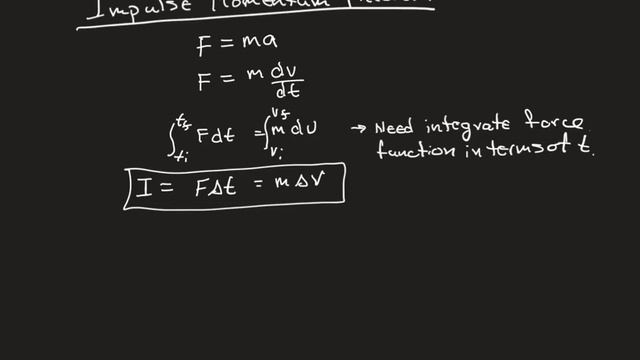 Impulse Momentum
F = ma
F = m dv/dt
∫_{ti}^{tf} Fdt = ∫_{vi}^{vf} m dv → Need integrate force
function in terms of t.
I = FΔt = mΔV